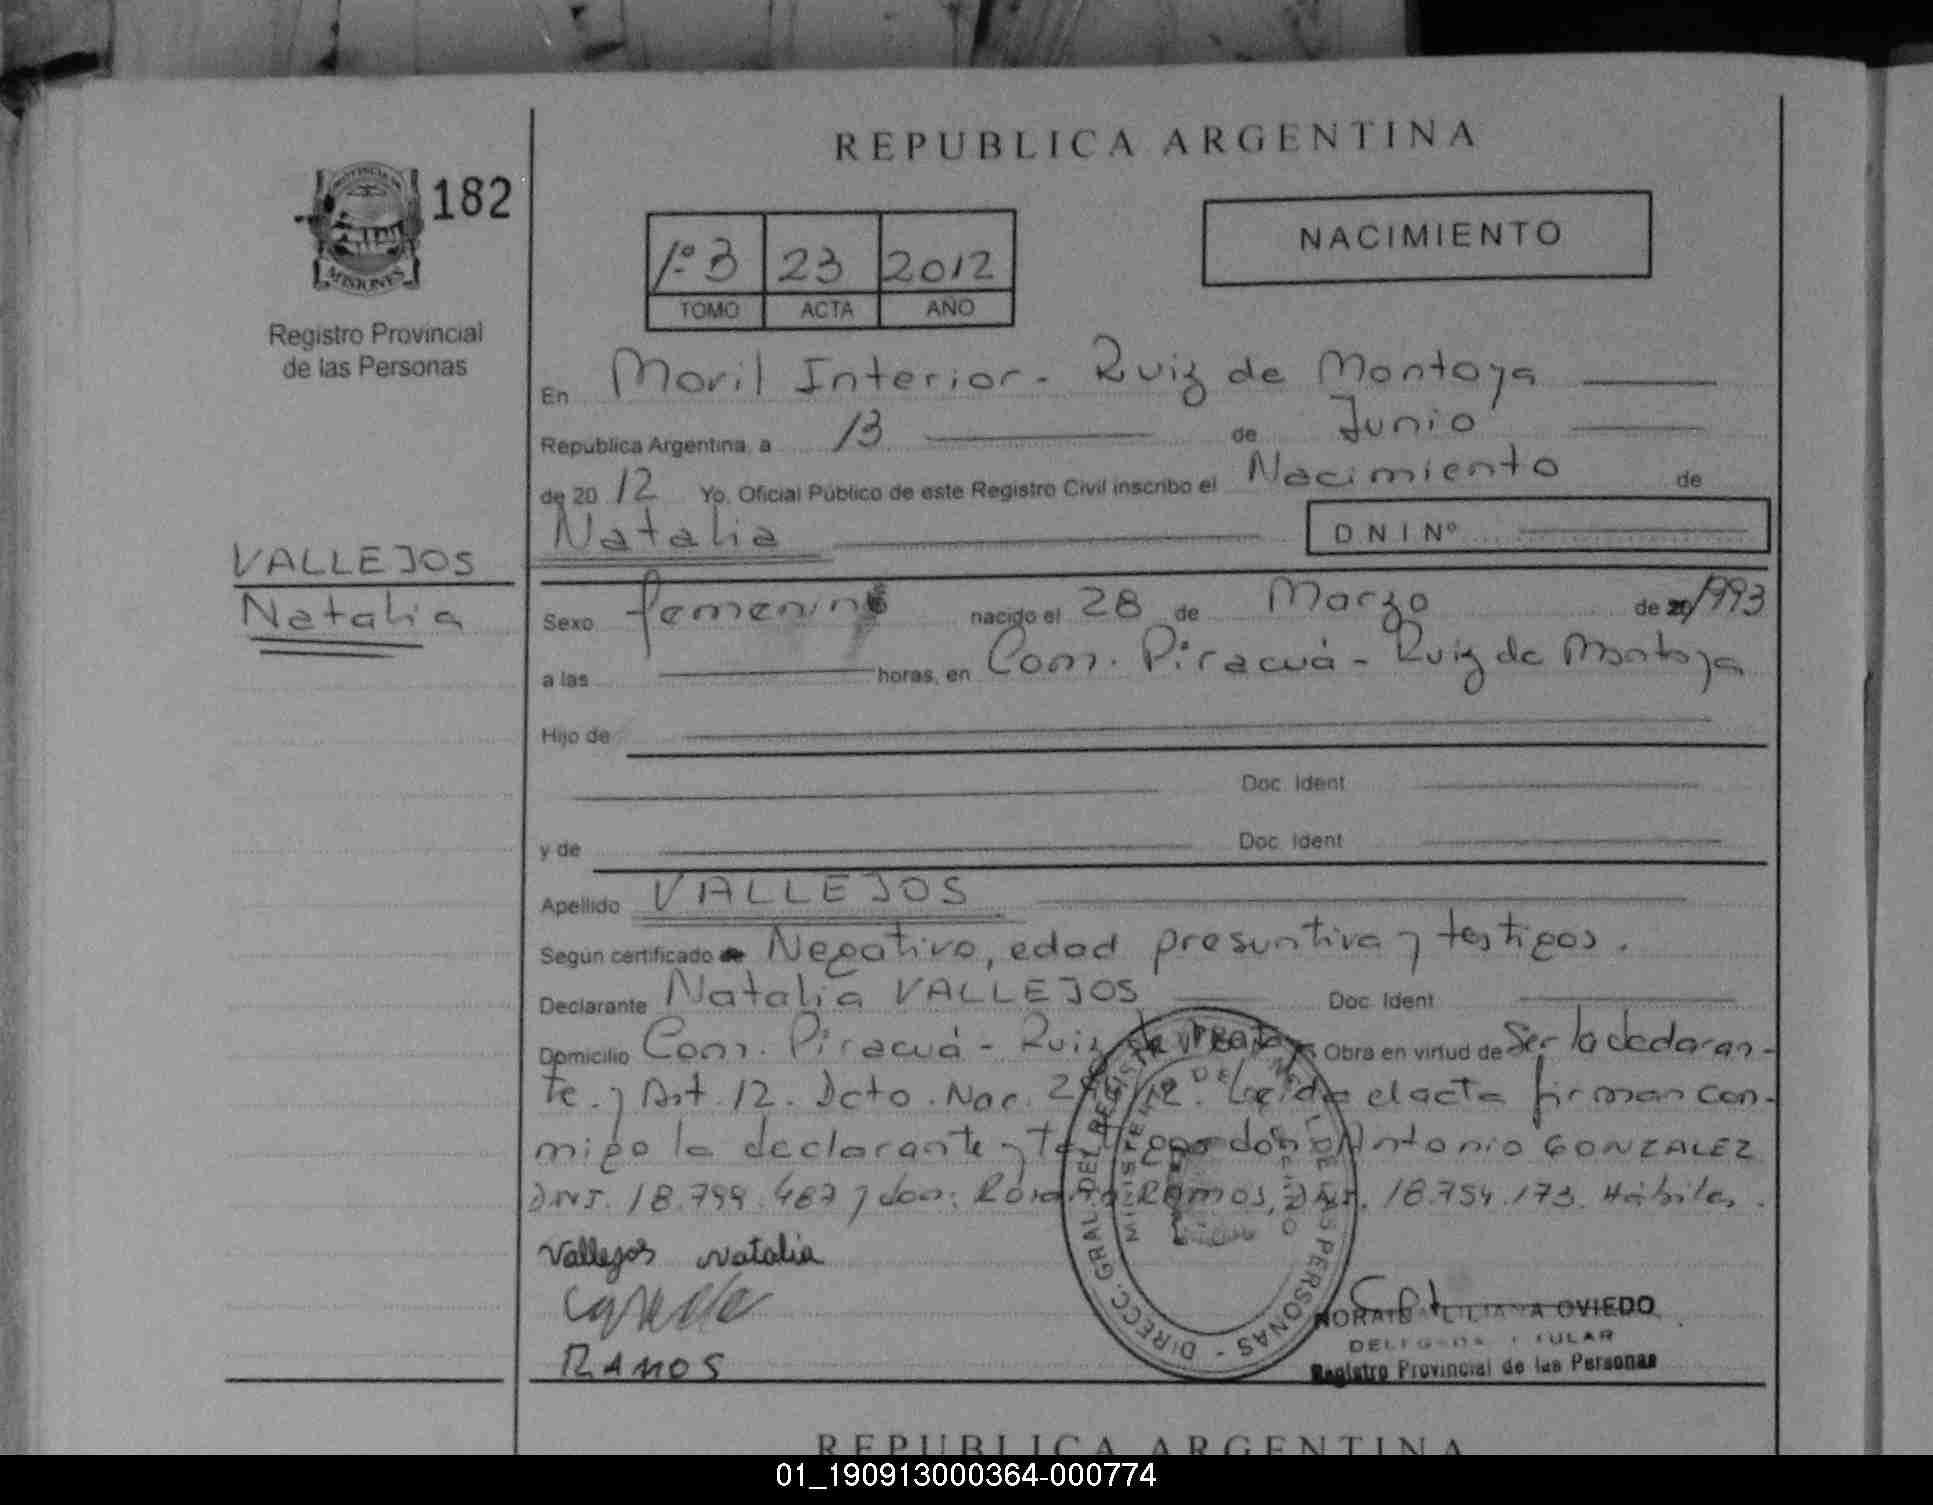 REPUBLICA ARGENTINA
PROVINCIA DE
MISIONES
182
Registro Provincial
de las Personas
1º 3 23 2012
TOMO ACTA AÑO
NACIMIENTO
En Moril Interior - Ruiz de Montoya
Republica Argentina, a 13 de Junio
de 20 12 Yo, Oficial Público de este Registro Civil inscribo el Nacimiento de
Natalia
D N I Nº
VALLEJOS
Natalia
Sexo femenino nacido el 28 de Marzo de 1993
a las horas, en Com. Piracuá - Ruiz de Montoya
Hijo de
Doc. Ident
y de Doc. Ident
Apellido VALLEJOS
Según certificado Negativo, edad presuntiva y testigos.
Declarante Natalia VALLEJOS Doc. Ident
Domicilio Com. Piracuá - Ruiz de Montoya Obra en virtud de Ser la declaran-
te. y Art. 12. Dcto. Nac. Leida el acta firman con-
migo la declarante y testigos don: Antonio GONZALEZ
DNI. 18.799.487 y don: Ramos, DNI. 18.754.173. Hábiles.
Vallejos Natalia
RAMOS
DIRECC. GRAL. DEL REGISTRO DE LAS PERSONAS
MINISTERIO DE GOBIERNO
LILIANA OVIEDO
DELEGADA TITULAR
Registro Provincial de las Personas
REPUBLICA ARGENTINA
01_190913000364-000774